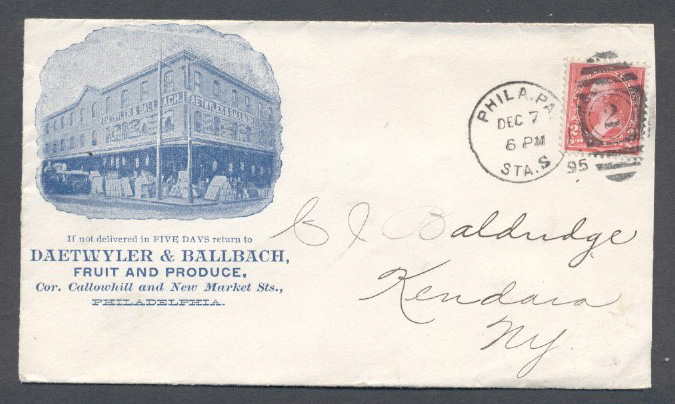 DAETWYLER & BALLBACH.
If not delivered in FIVE DAYS return to
DAETWYLER & BALLBACH,
FRUIT AND PRODUCE,
Cor. Callowhill and New Market Sts.,
PHILADELPHIA.
PHILA. PA.
DEC 7
6 PM
STA. S
95
2
C J Baldridge
Kendaia
NY.